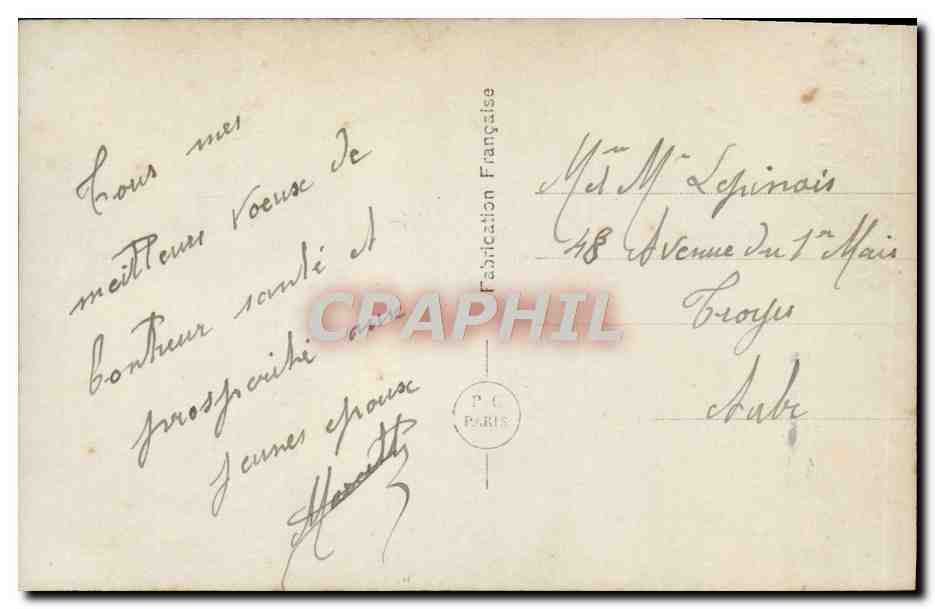 Tous mes
meilleurs voeux de
bonheur santé et
prosperité aux
jeunes epoux
Fabrication Française
P C
PARIS
Mr et Mme Lepinois
48 Avenue du 1er Mais
Troyes
Aube
CRAPHIL